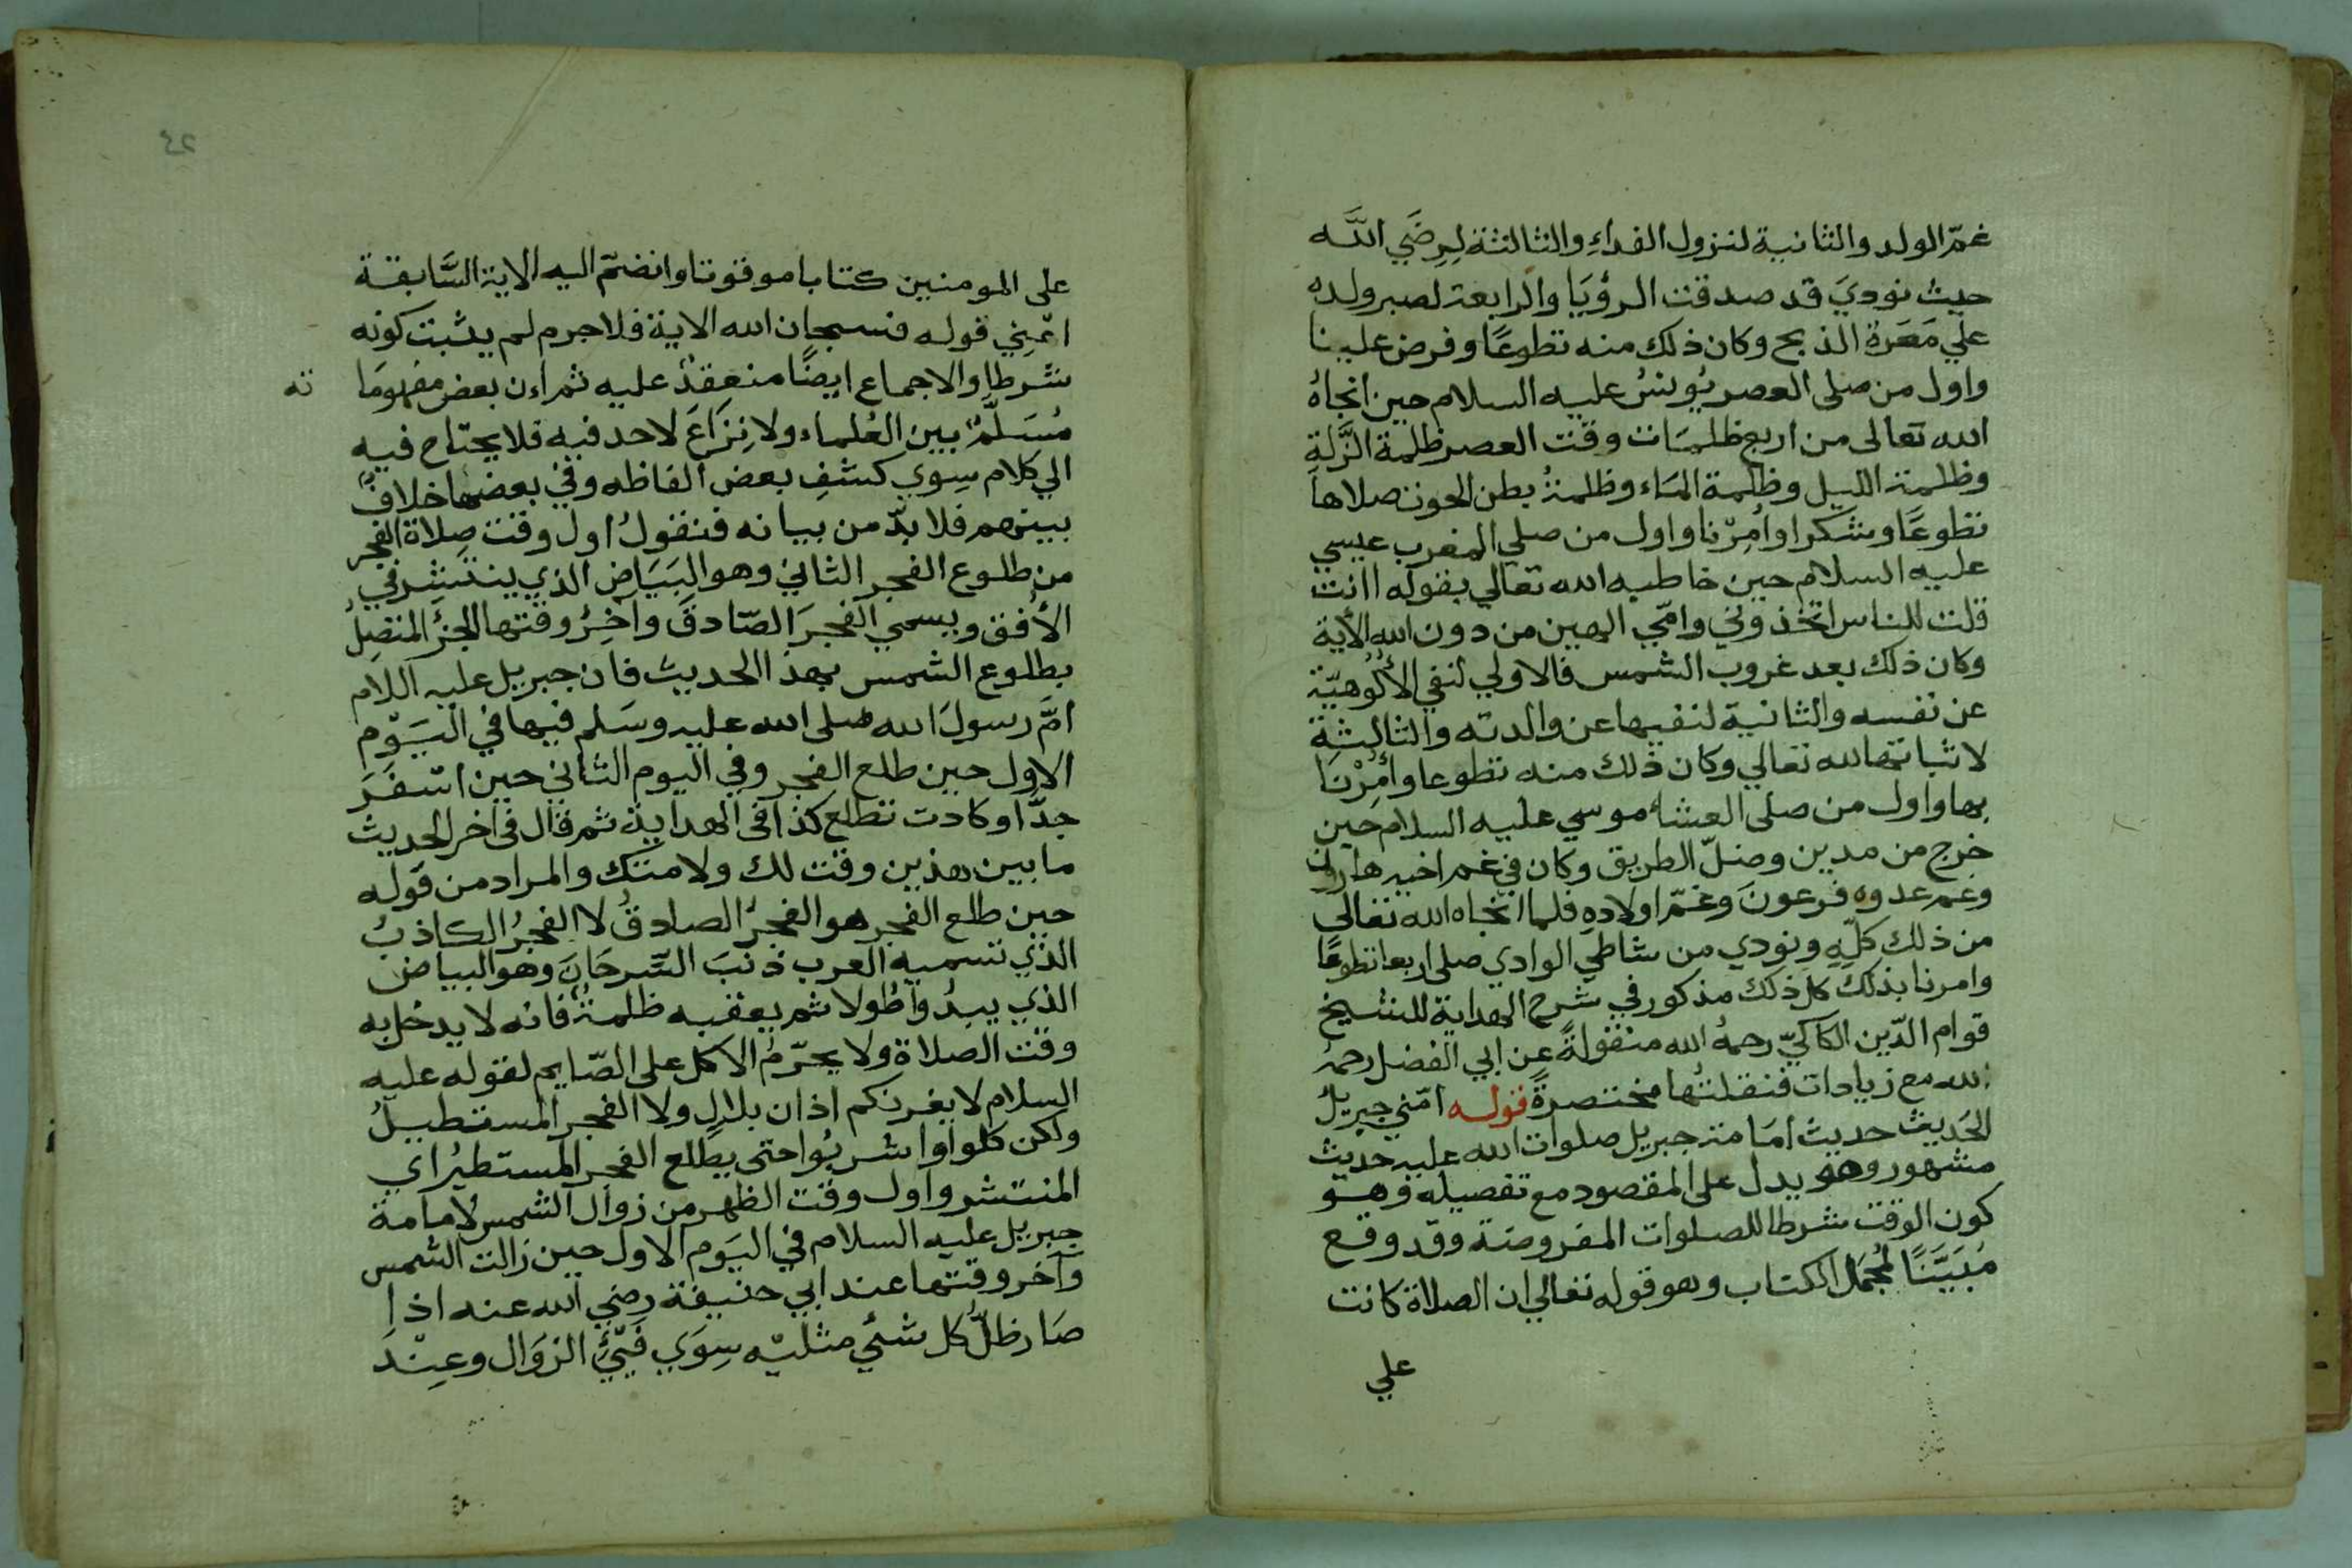 غمّ الولد والثانية لنزول الفداء والثالثة لِرِضَي اللَّه
حيث نوديَ قد صدقت الرؤيَا والرابعة لصبر ولده
علي مَعَرة الذبح وكان ذلك منه تطوعًا وفرض علينا
واول من صلى العصر يُونسُ عليه السلام حين انجاهُ
الله تعالى من اربع ظلمَات وقت العصر ظلمة الزَّلةِ
وظلمة الليل وظلمة المَاء وظلمةُ بطن الحوت صلاها
تطوعًا وشكرا وامِرْنا واول من صلي المغرب عيسي
عليه السلام حين خاطبه الله تعالي بقوله اانت
قلت للناس اتخذوني وامّي الهين من دون الله الأية
وكان ذلك بعد غروب الشمس فالاولي لنفي الأُلُوهيّة
عن نفسه والثانية لنفيها عن والدته والثالثة
لاثباتها لله تعالي وكان ذلك منه تطوعا وأُمِرْنَا
بها واول من صلى العشاء موسي عليه السلام حين
خرج من مدين وضلّ الطريق وكان في غم اخيه هارون
وغم عدوه فرعونَ وغمّ اولادهِ فلما انجاه الله تعالي
من ذلك كلّهِ ونودي من شاطي الوادي صلى اربعا تطوعًا
وامرنا بذلك كل ذلك مذكور في شرح الهداية للشيخ
قوام الدّين الكاكيّ رحمهُ الله منقولةً عن ابي الفضل رحمهُ
الله مع زيادات فنقلتُها مختصرةً قوله امّني جبريل
الحَديث حديث امَامة جبريل صلوات الله عليه حديث
مشهور وهو يدل على المقصود مع تفصيله وهو
كون الوقت شرطا للصلوات المفروضة وقد وقع
مُبَيَّنًا لمُجمَل الكتاب وهو قوله تعالي ان الصلاة كانت
علي
٤٢
على المومنين كتابا موقوتا وانضمّ اليه الاية السَّابقة
اعْنِي قوله فسبحان الله الاية فلاجرم لم يثبت كونه
شرطا والاجماع ايضًا منعقِدٌ عليه ثم اءن بعض مفهومَا
ته
مُسَلَّمٌ بين العُلماء ولا نِزَاعَ لاحد فيه فلا يحتاج فيه
الي كلام سِوي كشفِ بعض ألفاظه وفي بعضها خلافٌ
بينهم فلا بدّ من بيانه فنقولُ اول وقت صِلاة الفجر
من طلوع الفجر الثاني وهو البَيَاض الذي ينتشر في
الأُفق ويسمي الفجرَ الصّادقَ وآخِرُ وقتها الجزُ المتصِلُ
بطلوع الشمس بهذا الحديث فان جبريل عليه اللام
امَّ رسولَ الله صلى الله عليه وسَلم فيها في اليَوْم
الاول حين طلع الفجر وفي اليوم الثاني حين اسْفَرَ
جدًّا وكادت تطلع كذا في الهداية ثم قال في اخر الحديث
ما بين هذين وقت لك ولامتك والمراد من قوله
حين طلع الفجر هو الفجرُ الصادقُ لا الفجرُ الكاذبُ
الذي تسميه العرب ذنبَ السِّرحَانَ وهو البياض
الذي يبدُو طُولا ثم يعقبه ظلمةٌ فانه لا يدخل به
وقت الصلاة ولا يحرّمُ الاكل على الصّايم لقوله عليه
السلام لا يغرنكم اذان بلالٍ ولا الفجر المستطيلُ
ولكن كلوا واشربُوا حتى يطلع الفجر المستطيرُ اي
المنتشر واول وقت الظهر من زوال الشمس لامامة
جبريل عليه السلام في اليَوم الاول حين زالت الشمس
وآخر وقتها عند ابي حنيفة رضي الله عنه اذا
صَار ظلُّ كل شئي مثليْه سِوَي فَيْئ الزوَال وعِنْدَ